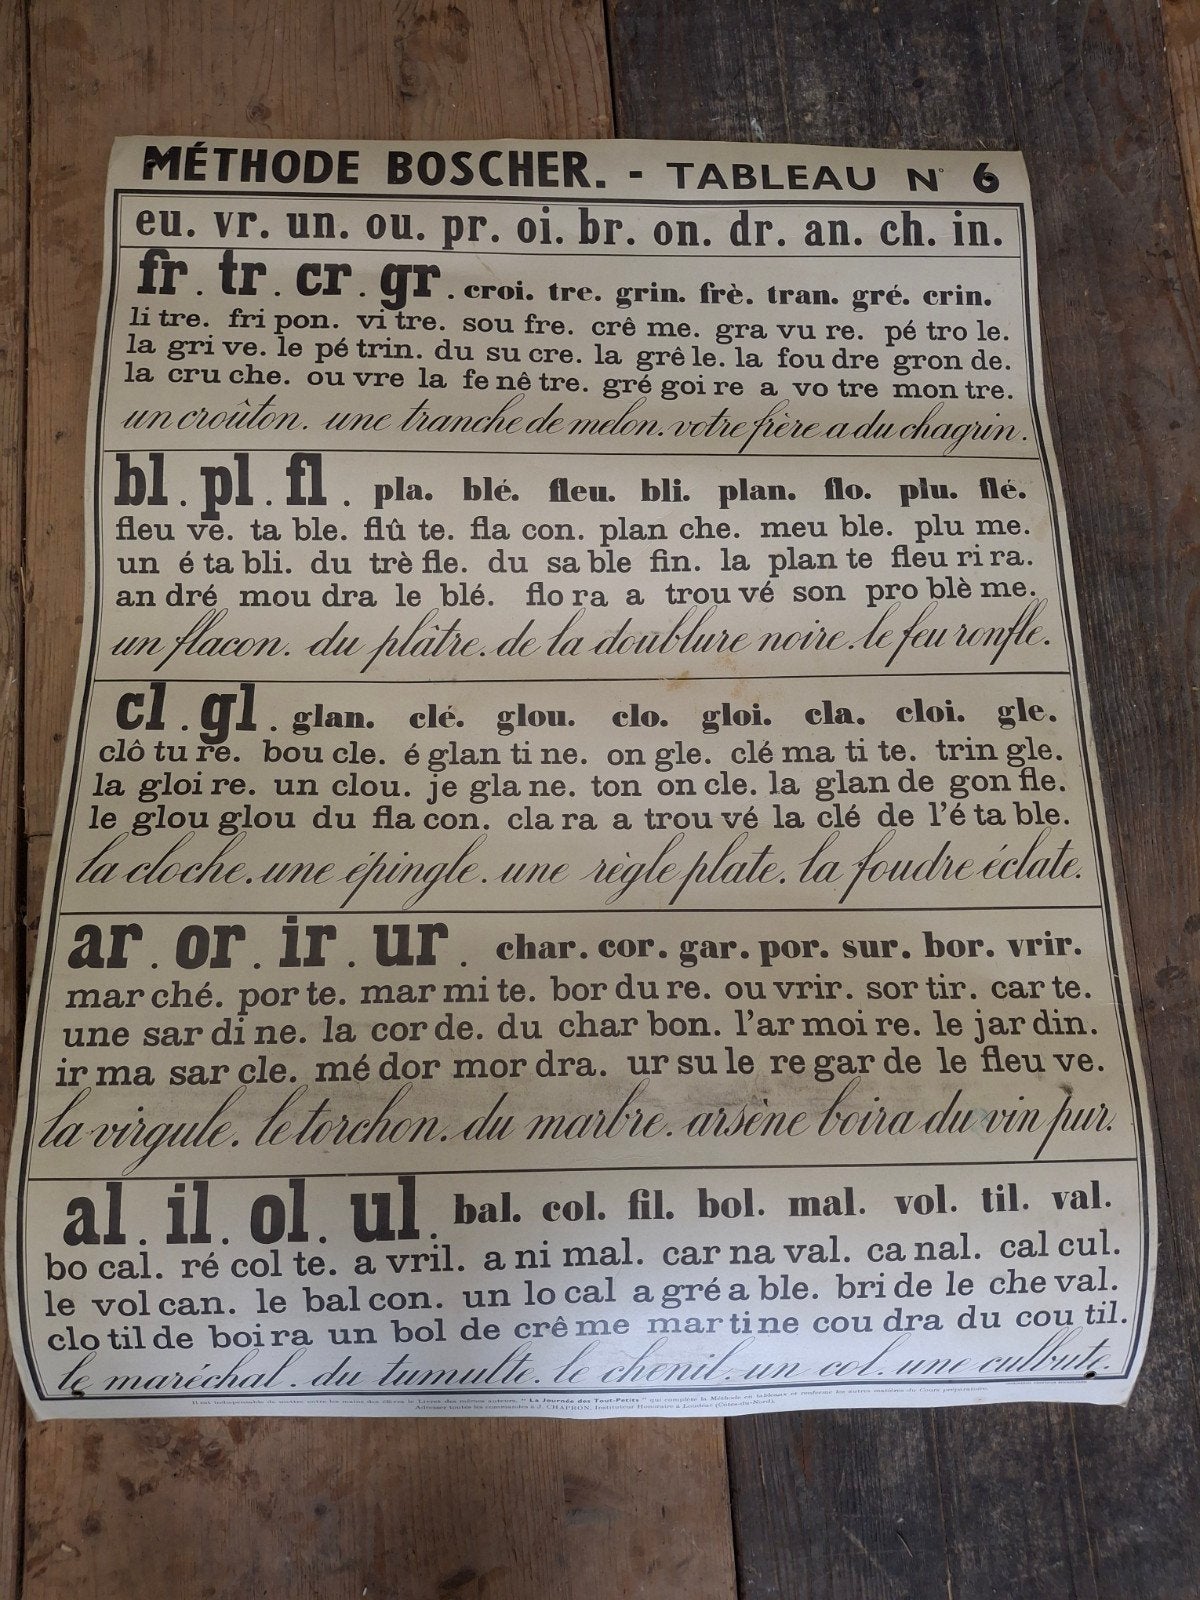 MÉTHODE BOSCHER. - TABLEAU N° 6
eu. vr. un. ou. pr. oi. br. on. dr. an. ch. in.
fr. tr. cr. gr. croi. tre. grin. frè. tran. gré. crin.
li tre. fri pon. vi tre. sou fre. crê me. gra vu re. pé tro le.
la gri ve. le pé trin. du su cre. la grê le. la fou dre gron de.
la cru che. ou vre la fe nê tre. gré goi re a vo tre mon tre.
un croûton. une tranche de melon. votre frère a du chagrin.
bl. pl. fl. pla. blé. fleu. bli. plan. flo. plu. flé.
fleu ve. ta ble. flû te. fla con. plan che. meu ble. plu me.
un é ta bli. du trè fle. du sa ble fin. la plan te fleu ri ra.
an dré mou dra le blé. flo ra a trou vé son pro blè me.
un flacon. du plâtre. de la doublure noire. le feu ronfle.
cl. gl. glan. clé. glou. clo. gloi. cla. cloi. gle.
clô tu re. bou cle. é glan ti ne. on gle. clé ma ti te. trin gle.
la gloi re. un clou. je gla ne. ton on cle. la glan de gon fle.
le glou glou du fla con. cla ra a trou vé la clé de l'é ta ble.
la cloche. une épingle. une règle plate. la foudre éclate.
ar. or. ir. ur. char. cor. gar. por. sur. bor. vrir.
mar ché. por te. mar mi te. bor du re. ou vrir. sor tir. car te.
une sar di ne. la cor de. du char bon. l'ar moi re. le jar din.
ir ma sar cle. mé dor mor dra. ur su le re gar de le fleu ve.
la virgule. le torchon. du marbre. arsène boira du vin pur.
al. il. ol. ul. bal. col. fil. bol. mal. vol. til. val.
bo cal. ré col te. a vril. a ni mal. car na val. ca nal. cal cul.
le vol can. le bal con. un lo cal a gré a ble. bri de le che val.
clo til de boi ra un bol de crê me mar ti ne cou dra du cou til.
le maréchal. du tumulte. le chenil. un col. une culbute.
Il est indispensable de mettre entre les mains des élèves le Livret des mêmes auteurs, "La Journée des Tout-Petits" qui complète la Méthode en tableaux et renferme les autres matières du Cours préparatoire.
Adresser toutes les commandes à J. CHAPRON, Instituteur Honoraire à Loudéac (Côtes-du-Nord).